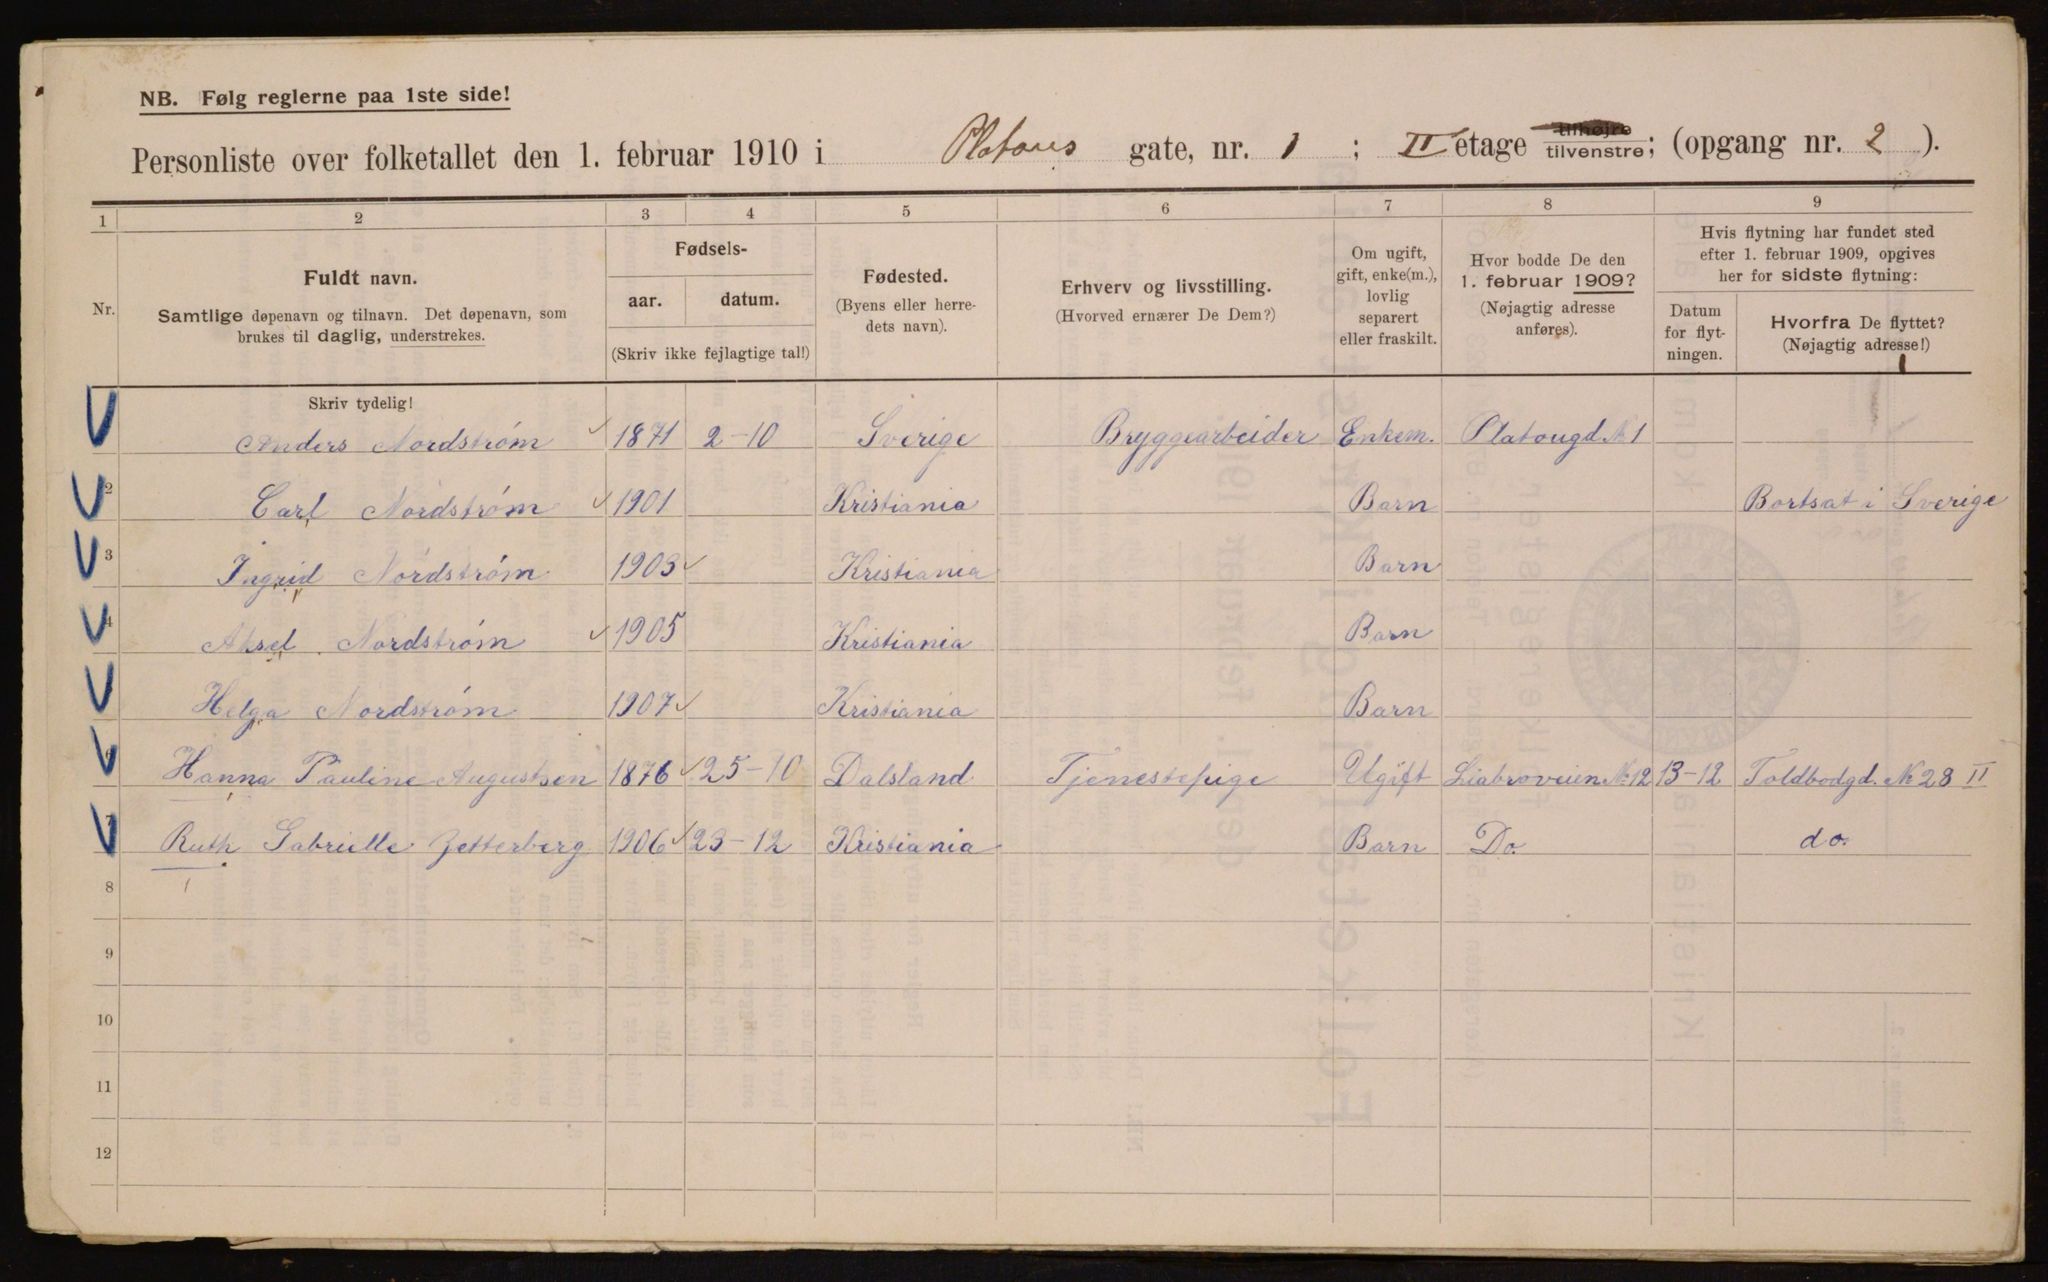 NB. Følg reglerne paa 1ste side!
Personliste over folketallet den 1. februar 1910 i Platous gate, nr. 1 ; II etage tilhøjre tilvenstre; (opgang nr. 2 ).
1 2 3 4 5 6 7 8 9
Nr.
Fuldt navn.
Samtlige døpenavn og tilnavn. Det døpenavn, som
brukes til daglig, understrekes.
Skriv tydelig!
Fødsels-
aar. datum.
(Skriv ikke fejlagtige tal!)
Fødested.
(Byens eller herre-
dets navn).
Erhverv og livsstilling.
(Hvorved ernærer De Dem?)
Om ugift,
gift, enke(m.),
lovlig
separert
eller fraskilt.
Hvor bodde De den
1. februar 1909?
(Nøjagtig adresse
anføres).
Hvis flytning har fundet sted
efter 1. februar 1909, opgives
her for sidste flytning:
Datum
for flyt-
ningen.
Hvorfra De flyttet?
(Nøjagtig adresse!)
Anders Nordstróm 1871 2-10 Sverige Bryggearbeider Enkem. Platougd. № 1
2 Carl Nordstróm 1901 Kristiania Barn Bortsat i Sverige
3 Ingrid Nordstróm 1903 Kristiania Barn
4 Aksel Nordstróm 1905 Kristiania Barn
Helga Nordstróm 1907 Kristiania Barn
6 Hanna Pauline Augustsen 1876 25-10 Dalsland Tjenestepige Ugift Liabroveien № 12 13-12 Toldbodgd. № 28 II
7 Ruth Gabrielle Zetterberg 1906 23-12 Kristiania Barn Do. do.
8
9
10
11
12